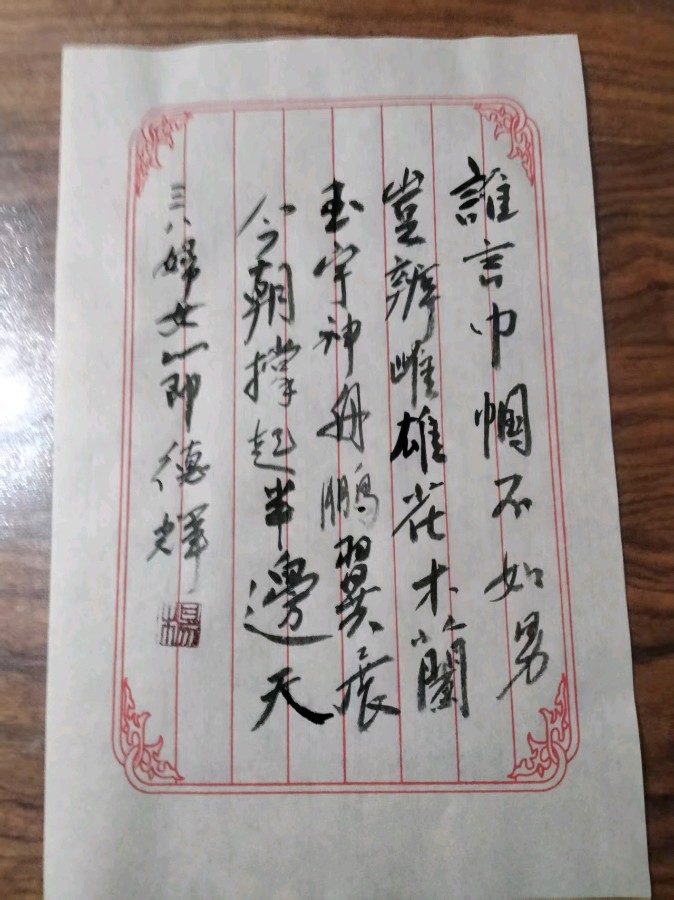 誰言巾幗不如男
豈辨雌雄花木蘭
玉宇神舟鵬翼展
今朝撐起半邊天
三八婦女節德輝
楊